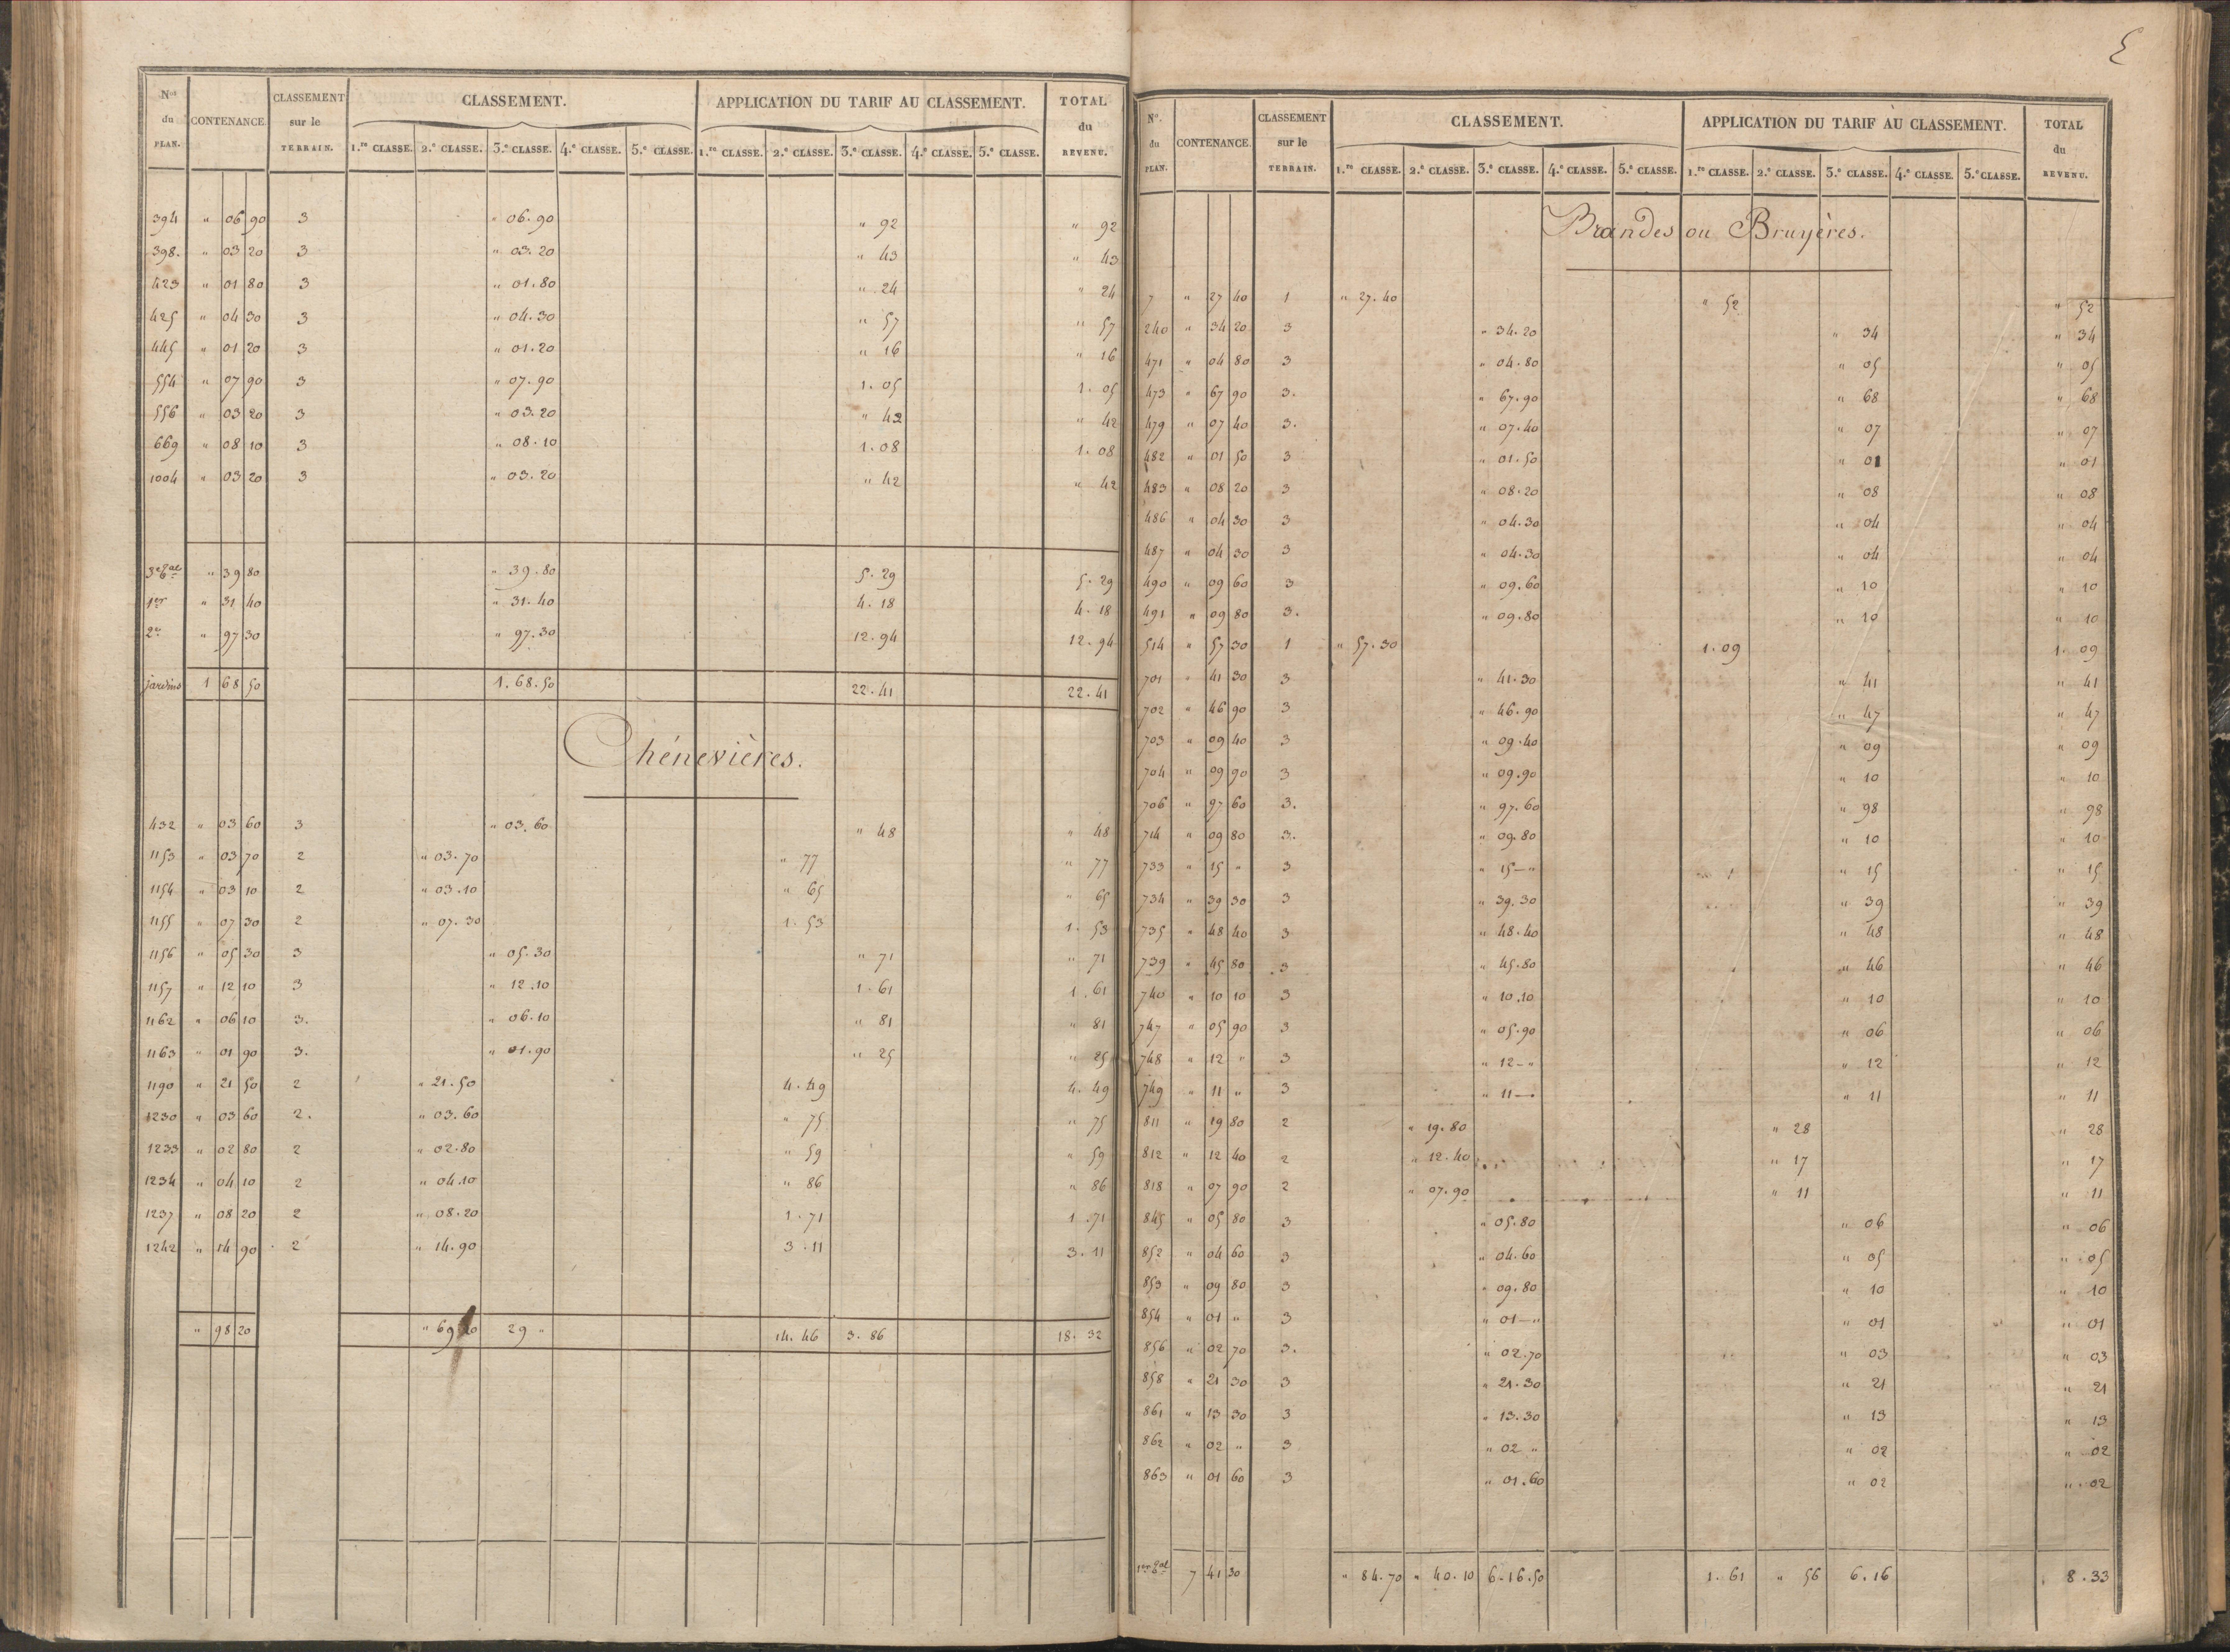 Nos du PLAN. CONTENANCE. CLASSEMENT sur le TERRAIN. CLASSEMENT. APPLICATION DU TARIF AU CLASSEMENT. TOTAL du REVENU.
1.re CLASSE. 2.e CLASSE. 3.e CLASSE. 4.e CLASSE. 5.e CLASSE. 1.re CLASSE. 2.e CLASSE. 3.e CLASSE. 4.e CLASSE. 5.e CLASSE.
394 " 06 90 3 " 06.90 " 92 " 92
398. " 03 20 3 " 03.20 " 43 " 43
423 " 01 80 3 " 01.80 " 24 " 24
425 " 04 30 3 " 04.30 " 57 " 57
445 " 01 20 3 " 01.20 " 16 " 16
554 " 07 90 3 " 07.90 1.05 1.05
556 " 03 20 3 " 03.20 " 42 " 42
669 " 08 10 3 " 08.10 1.08 1.08
1004 " 03 20 3 " 03.20 " 42 " 42
3e Tal " 39 80 " 39.80 5.29 5.29
1er " 31 40 " 31.40 4.18 4.18
2e " 97 30 " 97.30 12.94 12.94
jardins 1 68 50 1.68.50 22.41 22.41
Chénevières.
432 " 03 60 3 " 03.60 " 48 " 48
1153 " 03 70 2 " 03.70 " 77 " 77
1154 " 03 10 2 " 03.10 " 65 " 65
1155 " 07 30 2 " 07.30 1.53 1.53
1156 " 05 30 3 " 05.30 " 71 " 71
1157 " 12 10 3 " 12.10 1.61 1.61
1162 " 06 10 3. " 06.10 " 81 " 81
1163 " 01 90 3. " 01.90 " 25 " 25
1190 " 21 50 2 " 21.50 4.49 4.49
1230 " 03 60 2. " 03.60 " 75 " 75
1233 " 02 80 2 " 02.80 " 59 " 59
1234 " 04 10 2 " 04.10 " 86 " 86
1237 " 08 20 2 " 08.20 1.71 1.71
1242 " 14 90 2 " 14.90 3.11 3.11
" 98 20 " 69 20 29 " 14.46 3.86 18.32
N.o du PLAN. CONTENANCE. CLASSEMENT sur le TERRAIN. CLASSEMENT. APPLICATION DU TARIF AU CLASSEMENT. TOTAL du REVENU.
1.re CLASSE. 2.e CLASSE. 3.e CLASSE. 4.e CLASSE. 5.e CLASSE. 1.re CLASSE. 2.e CLASSE. 3.e CLASSE. 4.e CLASSE. 5.e CLASSE.
Brandes ou Bruyères.
7 " 27 40 1 " 27.40 " 52 " 52
240 " 34 20 3 " 34.20 " 34 " 34
471 " 04 80 3 " 04.80 " 05 " 05
473 " 67 90 3. " 67.90 " 68 " 68
479 " 07 40 3. " 07.40 " 07 " 07
482 " 01 50 3 " 01.50 " 01 " 01
483 " 08 20 3 " 08.20 " 08 " 08
486 " 04 30 3 " 04.30 " 04 " 04
487 " 04 30 3 " 04.30 " 04 " 04
490 " 09 60 3 " 09.60 " 10 " 10
491 " 09 80 3. " 09.80 " 10 " 10
514 " 57 30 1 " 57.30 1.09 1.09
701 " 41 30 3 " 41.30 " 41 " 41
702 " 46 90 3 " 46.90 " 47 " 47
703 " 09 40 3 " 09.40 " 09 " 09
704 " 09 90 3 " 09.90 " 10 " 10
706 " 97 60 3. " 97.60 " 98 " 98
714 " 09 80 3. " 09.80 " 10 " 10
733 " 15 " 3 " 15—" " 15 " 15
734 " 39 30 3 " 39.30 " 39 " 39
735 " 48 40 3 " 48.40 " 48 " 48
739 " 45 80 3 " 45.80 " 46 " 46
740 " 10 10 3 " 10.10 " 10 " 10
747 " 05 90 3 " 05.90 " 06 " 06
748 " 12 " 3 " 12—" " 12 " 12
749 " 11 " 3 " 11—" " 11 " 11
811 " 19 80 2 " 19.80 " 28 " 28
812 " 12 40 2 " 12.40 " 17 " 17
818 " 07 90 2 " 07.90 " 11 " 11
845 " 05 80 3 " 05.80 " 06 " 06
852 " 04 60 3 " 04.60 " 05 " 05
853 " 09 80 3 " 09.80 " 10 " 10
854 " 01 " 3 " 01—" " 01 " 01
856 " 02 70 3. " 02.70 " 03 " 03
858 " 21 30 3 " 21.30 " 21 " 21
861 " 13 30 3 " 13.30 " 13 " 13
862 " 02 " 3 " 02 " " 02 " 02
863 " 01 60 3 " 01.60 " 02 " 02
1er Tal 7 41 30 " 84.70 " 40.10 6.16.50 1.61 " 56 6.16 8.33